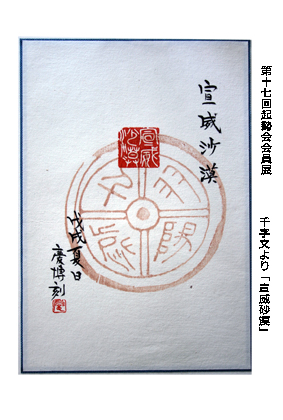 第十七回起勢会会員展
千字文より「宣威砂漠」
宣威沙漠
宣威
沙漠
戊戌夏日
慶博刻